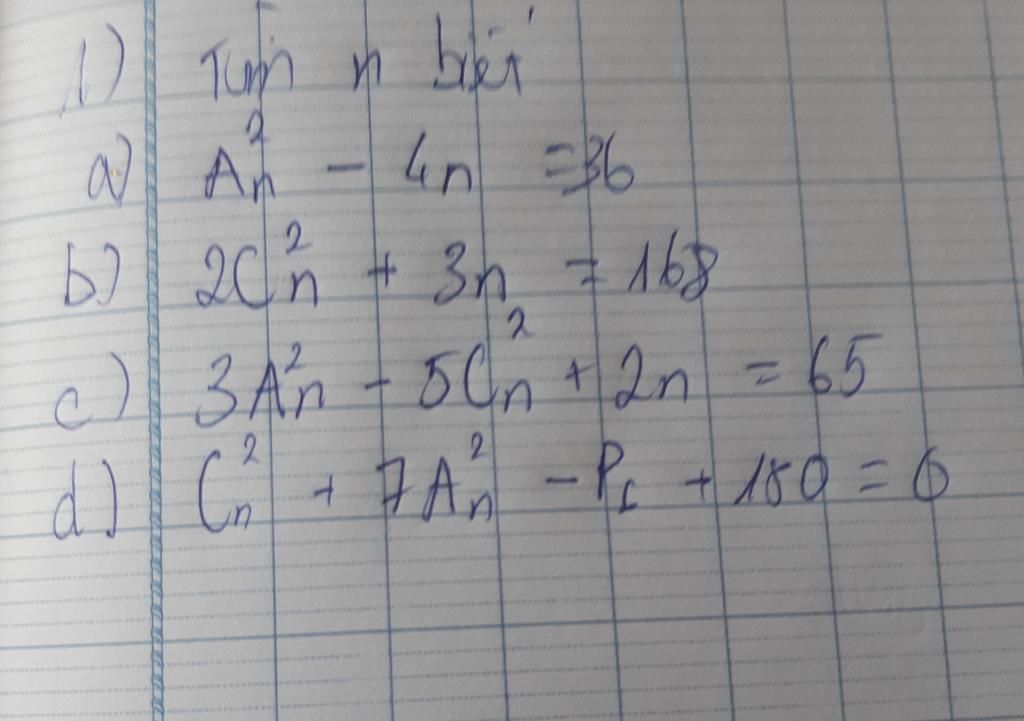 1) Tìm n biết
a) Aₙ² - 4n = 36
b) 2Cₙ² + 3n = 168
c) 3Aₙ² - 5Cₙ² + 2n = 65
d) Cₙ² + 7Aₙ² - P₆ + 180 = 0